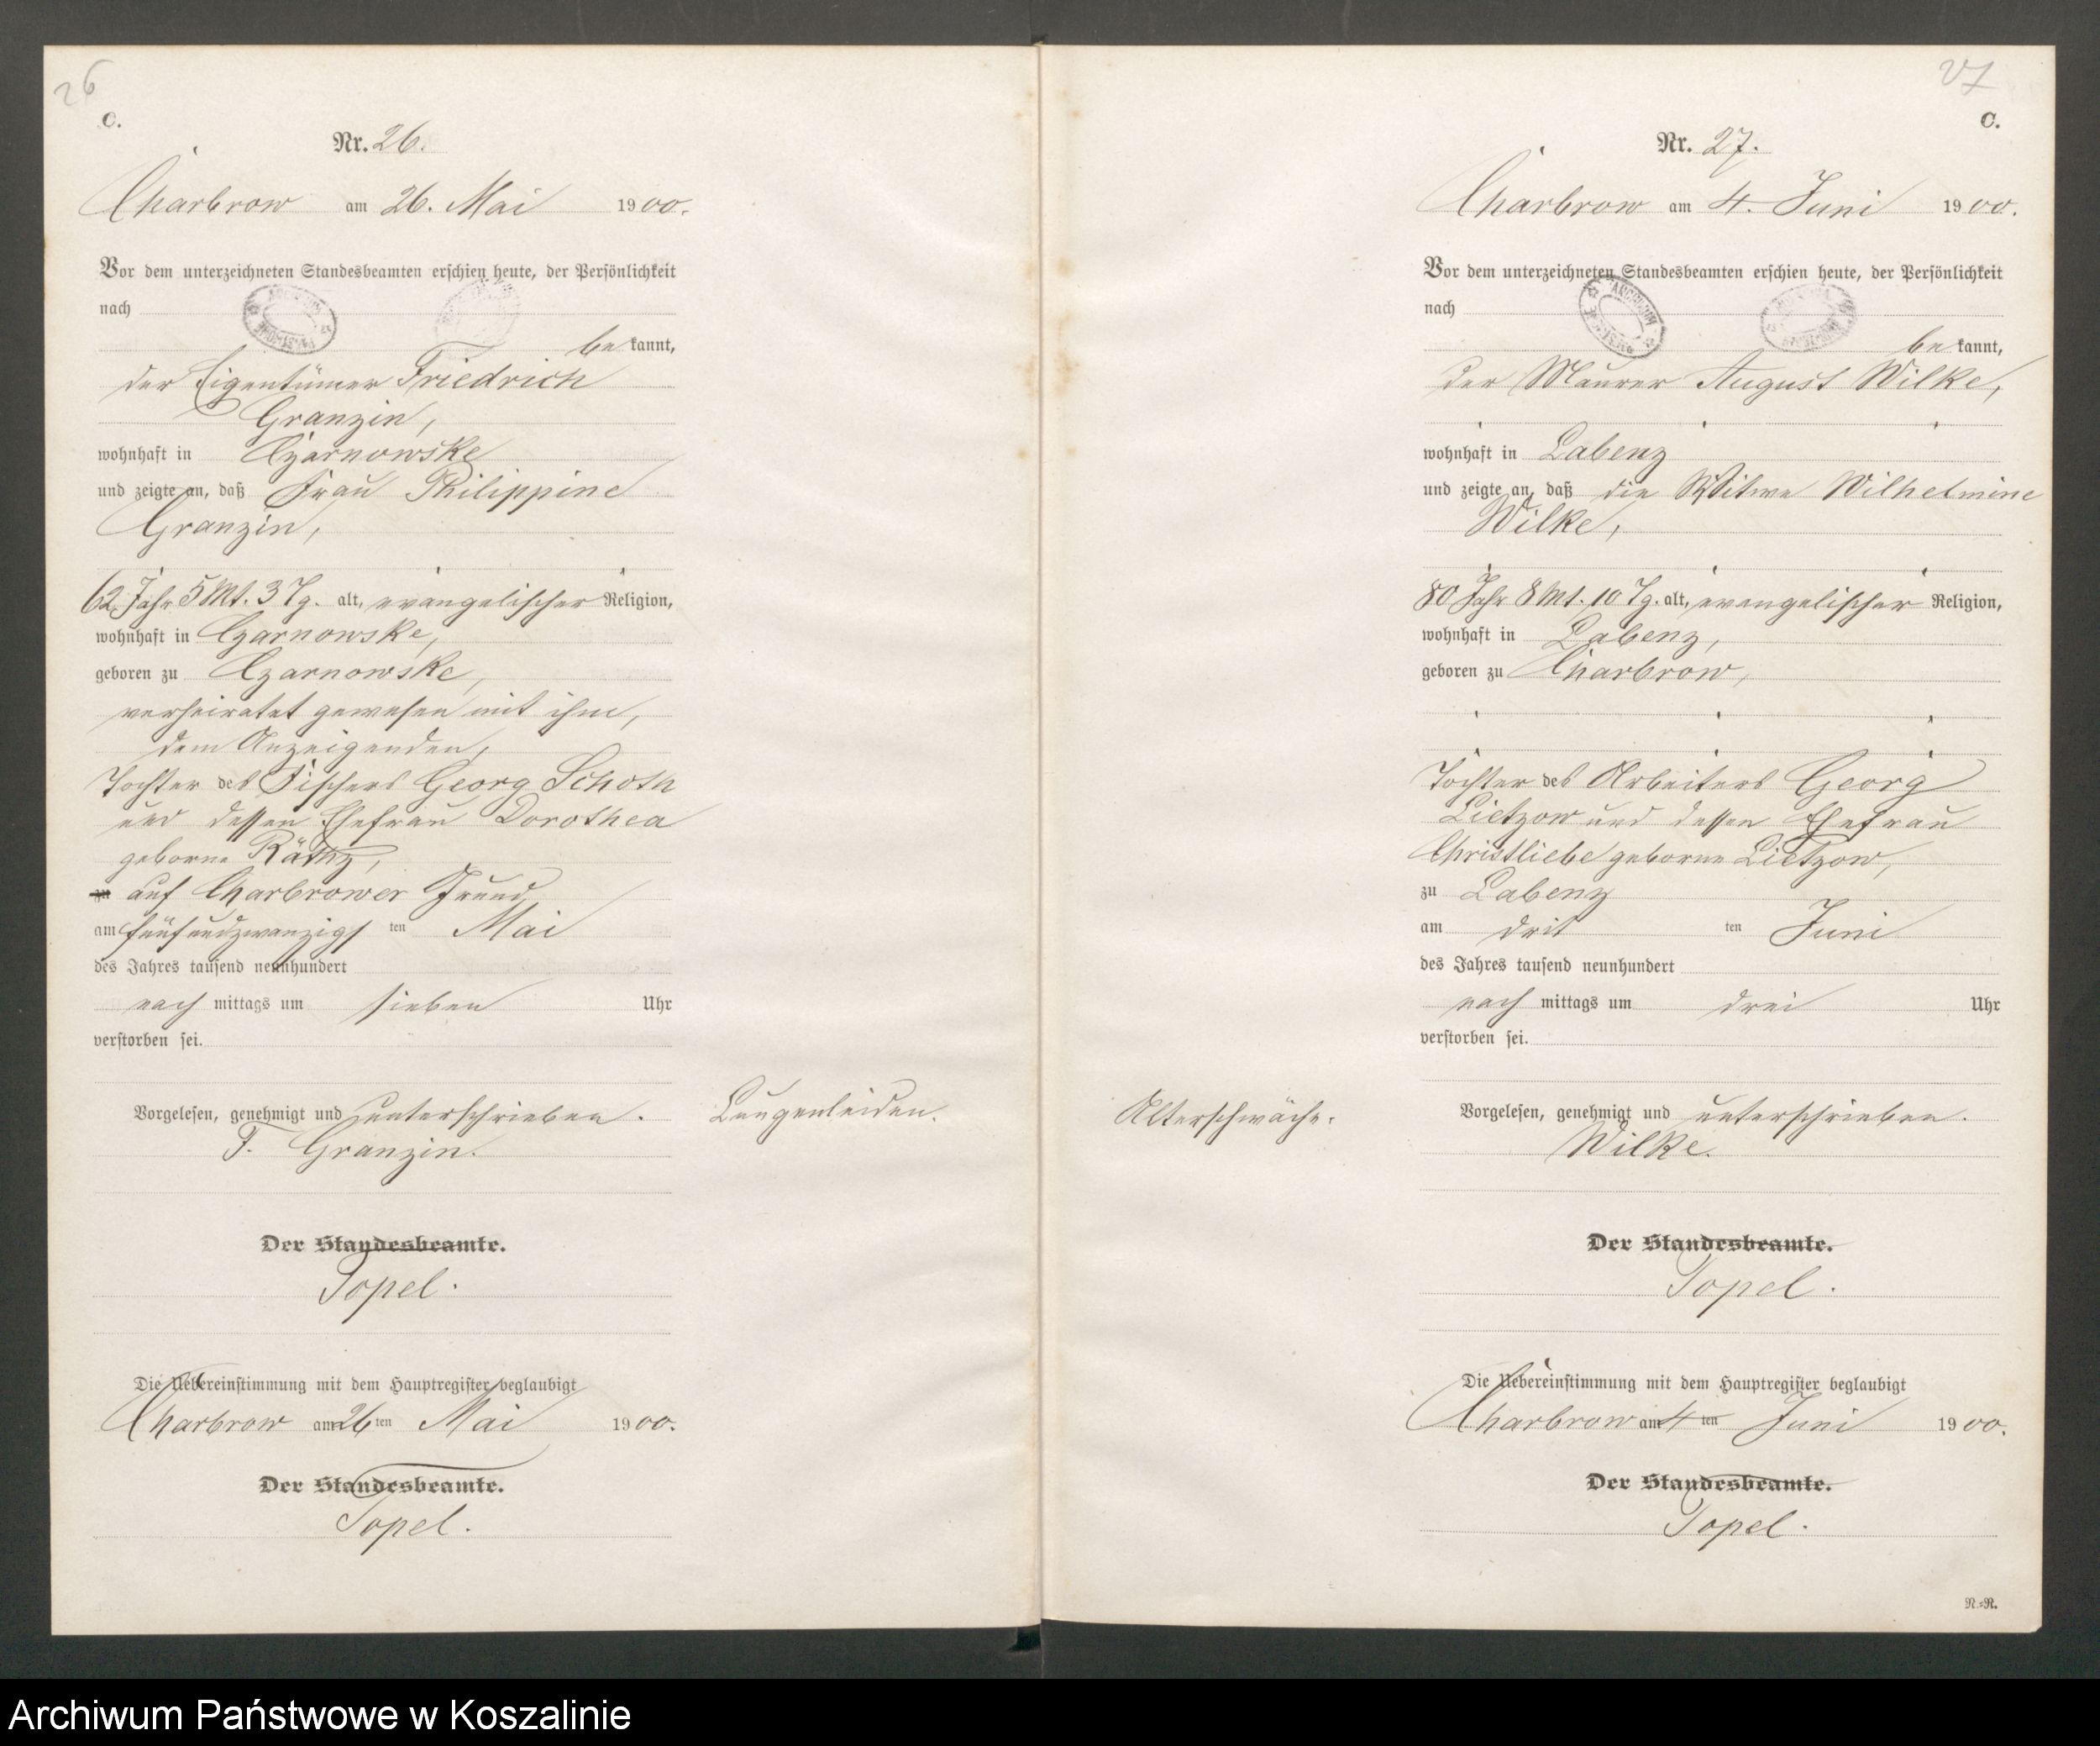 26
C.
Nr. 26.
Charbrow am 26. Mai 1900.
Vor dem unterzeichneten Standesbeamten erschien heute, der Persönlichkeit
nach
bekannt,
der Eigentümer Friedrich
Granzin,
wohnhaft in Czarnowske
und zeigte an, daß Frau Philippine
Granzin,
62 Jahr 5 Mt. 3 Tg. alt, evangelischer Religion,
wohnhaft in Czarnowske,
geboren zu Czarnowske,
verheiratet gewesen mit ihm,
dem Anzeigenden,
Tochter des Fischers Georg Schoth
und dessen Ehefrau Dorothea
geborne
zu auf Charbrower Grund
am fünfundzwanzigsten Mai
des Jahres tausend neunhundert
nachmittags um sieben Uhr
verstorben sei.
Vorgelesen, genehmigt und unterschrieben.
F. Granzin.
Lungenleiden.
Der Standesbeamte.
Topel.
Die Uebereinstimmung mit dem Hauptregister beglaubigt
Charbrow am 26ten Mai 1900.
Der Standesbeamte.
Topel.
27
C.
Nr. 27.
Charbrow am 4. Juni 1900.
Vor dem unterzeichneten Standesbeamten erschien heute, der Persönlichkeit
nach
bekannt,
der Maurer August Wilke,
wohnhaft in Labenz
und zeigte an, daß die Witwe Wilhelmine
Wilke,
80 Jahr 8 Mt. 10 Tg. alt, evangelischer Religion,
wohnhaft in Labenz,
geboren zu Charbrow,
Tochter des Arbeiters Georg
Lietzow und dessen Ehefrau
Christliebe geborne Lietzow,
zu Labenz
am dritten Juni
des Jahres tausend neunhundert
nachmittags um drei Uhr
verstorben sei.
Alterschwäche.
Vorgelesen, genehmigt und unterschrieben.
Wilke.
Der Standesbeamte.
Topel.
Die Uebereinstimmung mit dem Hauptregister beglaubigt
Charbrow am 4ten Juni 1900.
Der Standesbeamte.
Topel.
N.=R.
Archiwum Państwowe w Koszalinie